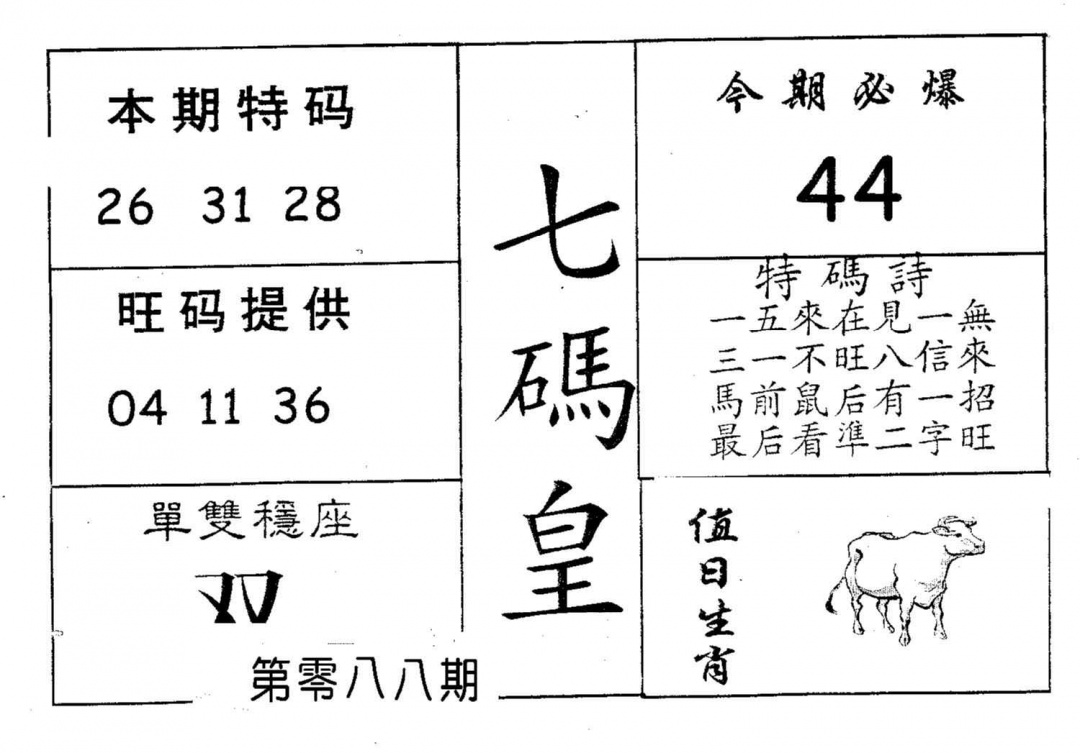 本期特码
26 31 28
旺码提供
04 11 36
單雙穩座
双
第零八八期
七碼皇
今期必爆
44
特碼詩
一五來在見一無
三一不旺八信來
馬前鼠后有一招
最后看準二字旺
值日生肖